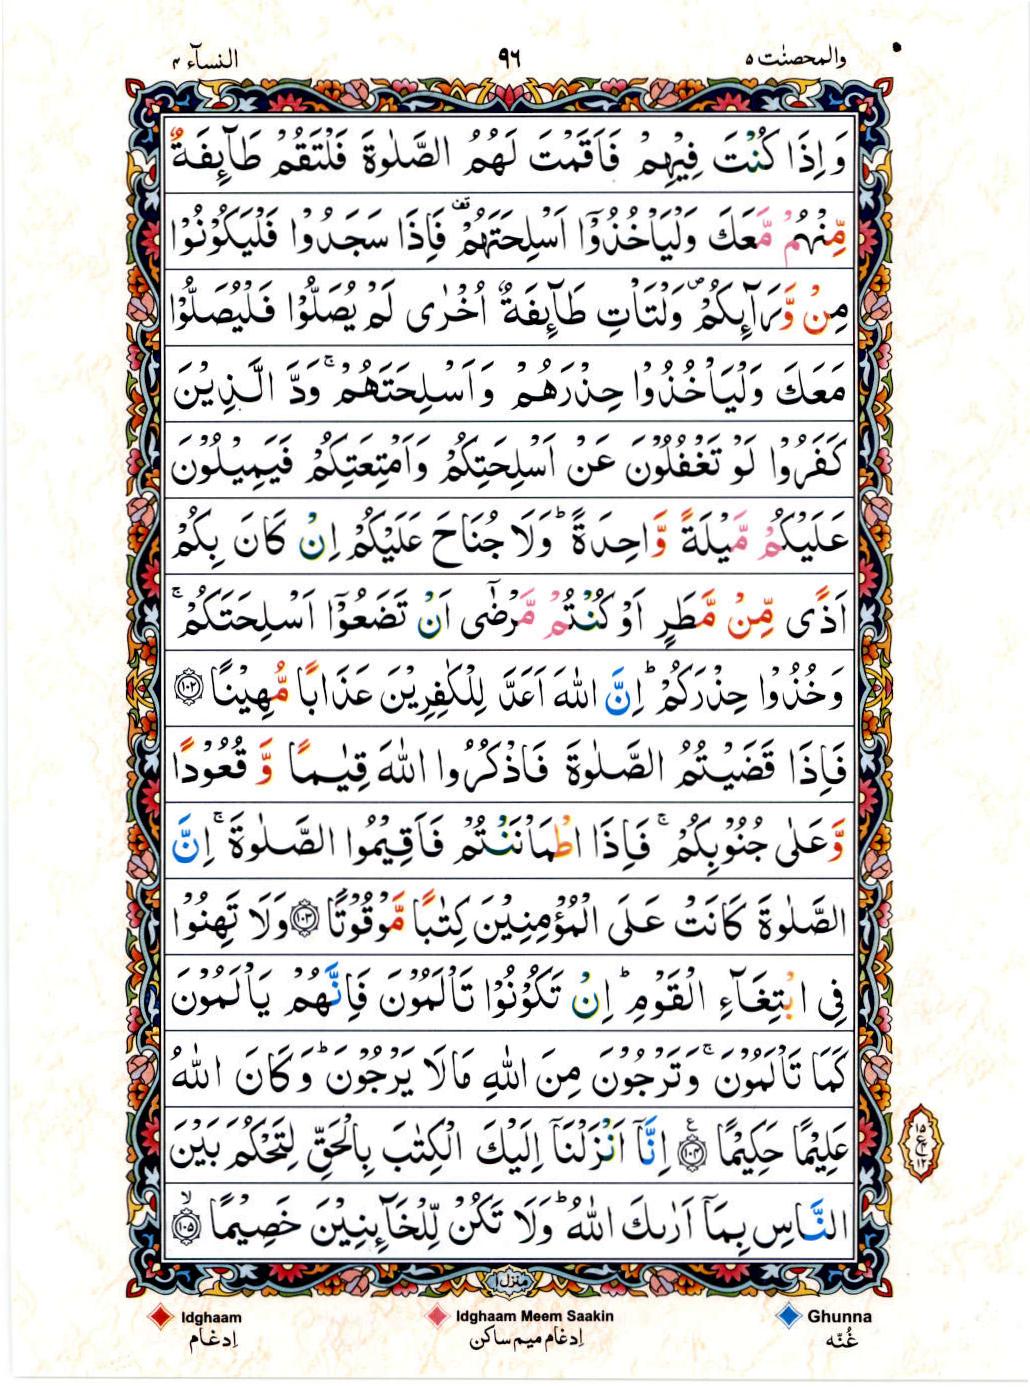 والمحصنٰت ۵
۹۶
النسآء ۴
وَ اِذَا كُنْتَ فِيْهِمْ فَاَقَمْتَ لَهُمُ الصَّلٰوةَ فَلْتَقُمْ طَآئِفَةٌ
مِّنْهُمْ مَّعَكَ وَلْيَاْخُذُوْۤا اَسْلِحَتَهُمْ ۫ فَاِذَا سَجَدُوْا فَلْيَكُوْنُوْا
مِنْ وَّرَآئِكُمْ ۪ وَلْتَاْتِ طَآئِفَةٌ اُخْرٰى لَمْ يُصَلُّوْا فَلْيُصَلُّوْا
مَعَكَ وَلْيَاْخُذُوْا حِذْرَهُمْ وَاَسْلِحَتَهُمْ ۚ وَدَّ الَّذِيْنَ
كَفَرُوْا لَوْ تَغْفُلُوْنَ عَنْ اَسْلِحَتِكُمْ وَاَمْتِعَتِكُمْ فَيَمِيْلُوْنَ
عَلَيْكُمْ مَّيْلَةً وَّاحِدَةً ؕ وَلَا جُنَاحَ عَلَيْكُمْ اِنْ كَانَ بِكُمْ
اَذًى مِّنْ مَّطَرٍ اَوْ كُنْتُمْ مَّرْضٰۤى اَنْ تَضَعُوْۤا اَسْلِحَتَكُمْ ۚ
وَخُذُوْا حِذْرَكُمْ ؕ اِنَّ اللّٰهَ اَعَدَّ لِلْكٰفِرِيْنَ عَذَابًا مُّهِيْنًا ۝۱۰۲
فَاِذَا قَضَيْتُمُ الصَّلٰوةَ فَاذْكُرُوا اللّٰهَ قِيٰمًا وَّ قُعُوْدًا
وَّعَلٰى جُنُوْبِكُمْ ۚ فَاِذَا اطْمَاْنَنْتُمْ فَاَقِيْمُوا الصَّلٰوةَ ۚ اِنَّ
الصَّلٰوةَ كَانَتْ عَلَى الْمُؤْمِنِيْنَ كِتٰبًا مَّوْقُوْتًا ۝۱۰۳ وَلَا تَهِنُوْا
فِى ابْتِغَآءِ الْقَوْمِ ؕ اِنْ تَكُوْنُوْا تَاْلَمُوْنَ فَاِنَّهُمْ يَاْلَمُوْنَ
كَمَا تَاْلَمُوْنَ ۚ وَتَرْجُوْنَ مِنَ اللّٰهِ مَا لَا يَرْجُوْنَ ؕ وَكَانَ اللّٰهُ
عَلِيْمًا حَكِيْمًا ۝۱۰۴ اِنَّاۤ اَنْزَلْنَاۤ اِلَيْكَ الْكِتٰبَ بِالْحَقِّ لِتَحْكُمَ بَيْنَ
النَّاسِ بِمَاۤ اَرٰىكَ اللّٰهُ ؕ وَلَا تَكُنْ لِّلْخَآئِنِيْنَ خَصِيْمًا ۝۱۰۵
۱۵
ع
۱۲
منزل ۱
Idghaam
Idghaam Meem Saakin
Ghunna
اِدغام
اِدغام میم ساکن
غُنّه